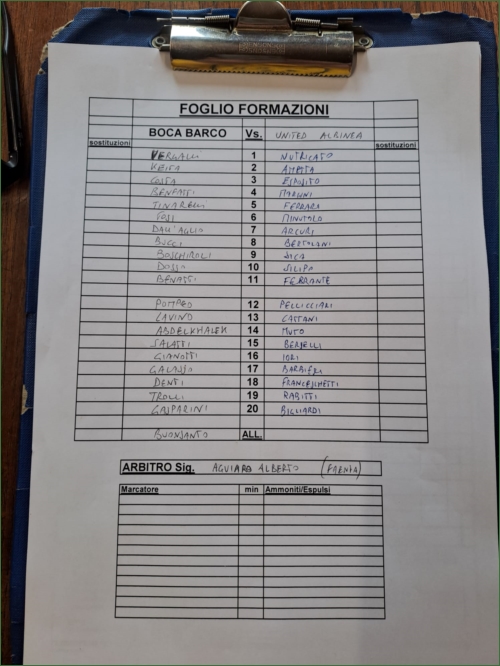 FOGLIO FORMAZIONI
BOCA BARCO Vs. UNITED ALBINEA
sostituzioni sostituzioni
VERGALLI 1 NUTRICATO
KEITA 2
COSTA 3 ESPOSITO
BENFATTI 4
TINARELLI 5 FERRARI
6 MINUTOLO
DALL'AGLIO 7 ARCURI
BUCCI 8 BERTOLANI
BOSCHIROLI 9 SICA
DOSSO 10 SILIPO
BENASSI 11 FERRANTE
POMPEO 12 PELLICCIARI
LAVINO 13 CATTANI
ABDELKHALEK 14 MUTO
SALATTI 15 BERSELLI
GIANOTTI 16 IORI
GALASSO 17 BARBIERI
DENTI 18 FRANCESCHETTI
TROLLI 19 RABITTI
GASPARINI 20 BIGLIARDI
BUONSANTO ALL.
ARBITRO Sig. AGUIARO ALBERTO
Marcatore min Ammoniti/Espulsi